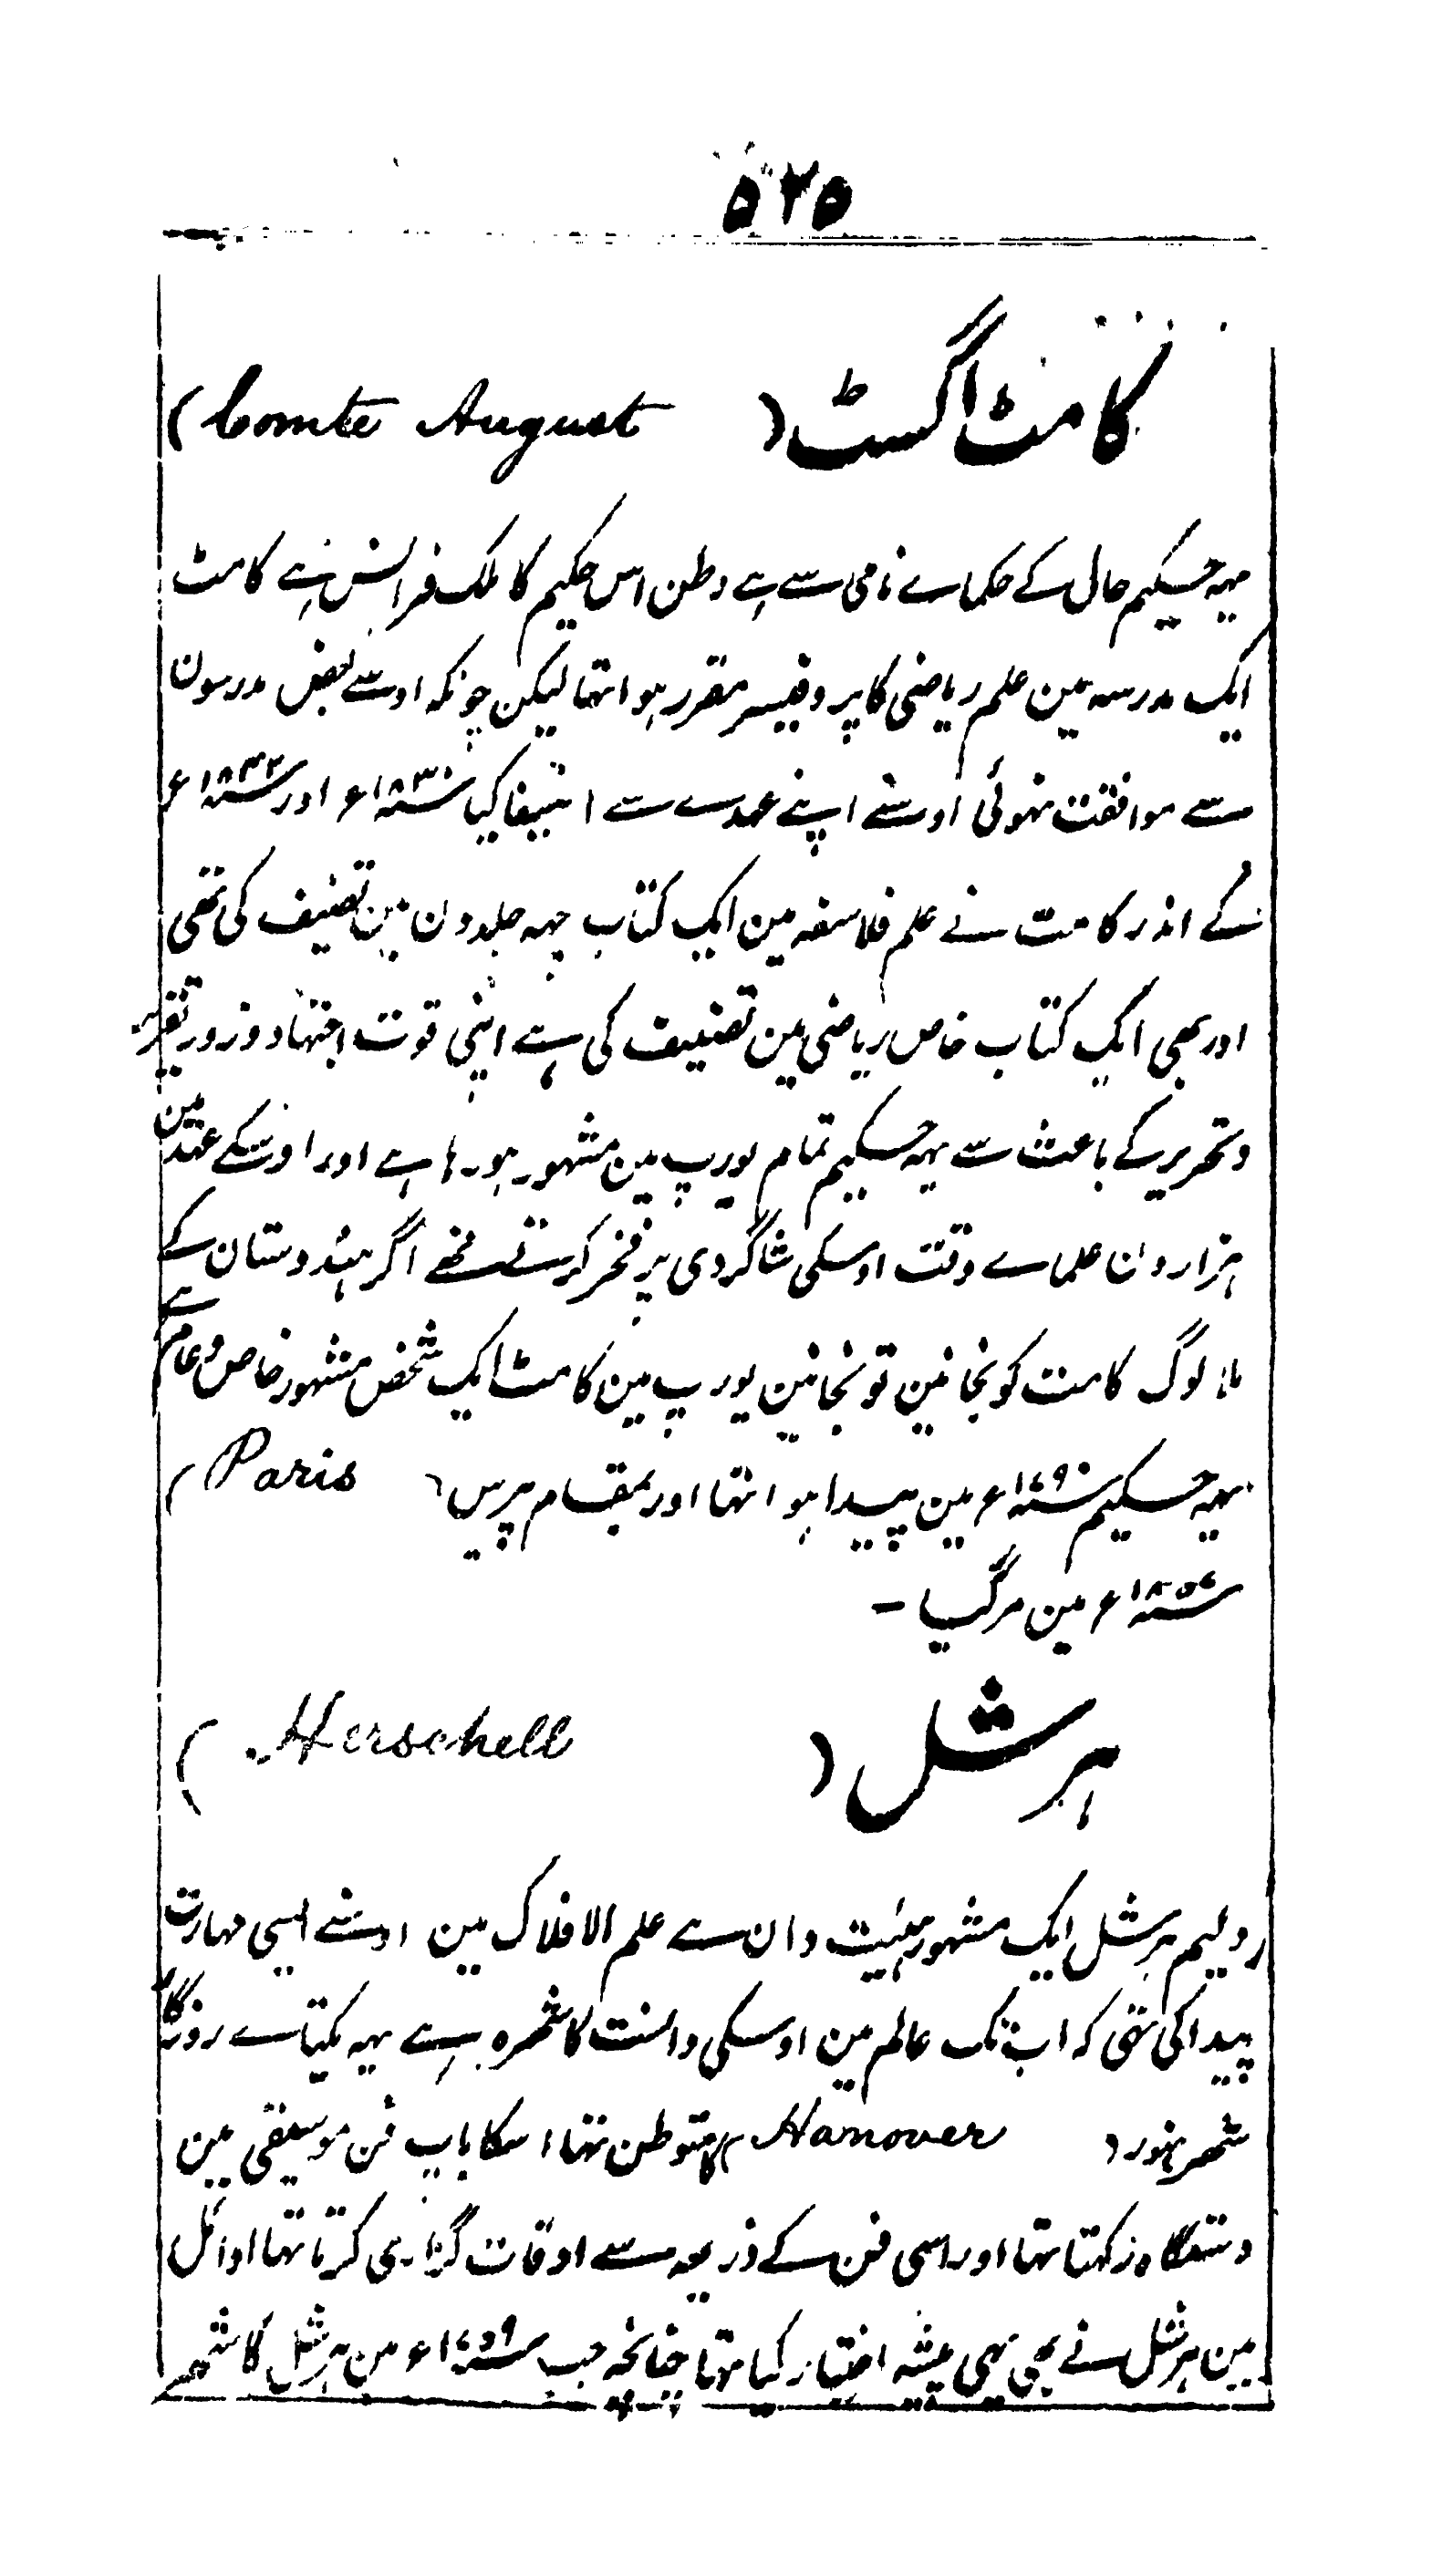 ۵۲۵
کامٹ اگسٹ ( Comte August )
یہہ حکیم حال کے حکماے نامی سے ہے وطن اس حکیم کا ملک فرانس ہے کامٹ
ایک مدرسہ مین علم ریاضی کا پروفیسر مقرر ہوا تہا لیکن چونکہ اوسے بعض مدرسون
سے موافقت نہوئی اوسنے اپنے عہدے سے استیفا کیا سنہ ۱۸۳۰ ۶ اور سنہ ۱۸۴۲ ۶
کے اندر کامت نے علم فلاسفہ مین ایک کتاب چہہ جلدون مین تصنیف کی تھی
اور بھی ایک کتاب خاص ریاضی مین تصنیف کی ہے اپنی قوت اجتہاد و زور تقریر
و تحریر کے باعث سے یہہ حکیم تمام یورپ مین مشہور ہو رہا ہے اور اوسکے عہد مین
ہزارون علماے وقت اوسکی شاگردی پر فخر کرتے تھے اگر ہندوستان کے
ملا لوگ کامت کو نجانین تو نجانین یورپ مین کامٹ ایک شخص مشہور خاص و عام ہے
یہہ حکیم سنہ ۱۷۹۰ ۶ مین پیدا ہوا تہا اور بمقام پرس ( Paris )
سنہ ۱۸۵۷ ۶ مین مرگیا -
ہرشل ( Herschell )
ولیم ہرشل ایک مشہور ہیئت دان ہے علم الافلاک مین اوسنے ایسی مہارت
پیدا کی تھی کہ اب تک عالم مین اوسکی دانست کا شہرہ ہے یہہ یکتاے روزگار
شہر ہنور ( Hanover ) کا متوطن تہا اسکا باپ فن موسیقی مین
دستگاہ رکہتا تہا اور اسی فن کے ذریعہ سے اوقات گزاری کرتا تہا اوائل
مین ہرشل نے بھی یہی پیشہ اختیار کیا تہا چنانچہ جب سنہ ۱۷۵۹ ۶ مین ہرشل کا شہر